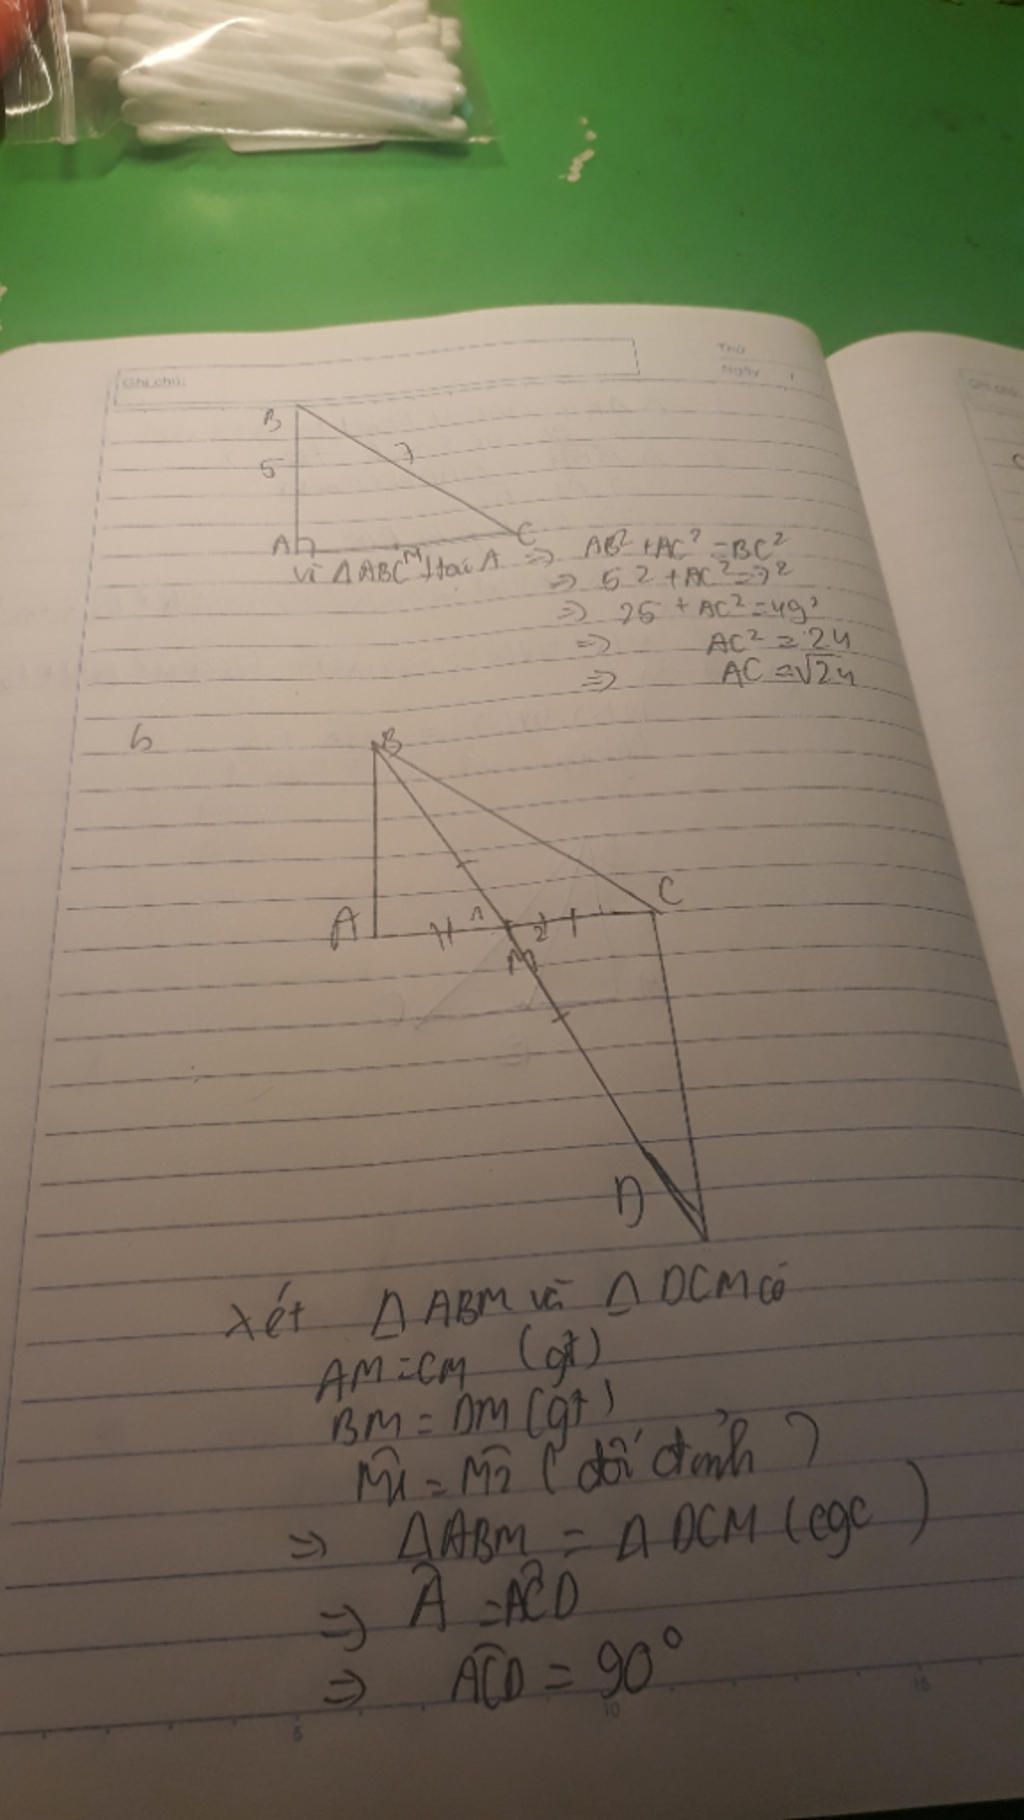 Ghi chú:
Thứ
Ngày /
B
5
7
A
M
C
vì Δ ABC tại A => AB² + AC² = BC²
=> 5² + AC² = 7²
=> 25 + AC² = 49
=> AC² = 24
=> AC = √24
b
B
A
1
2
C
M
D
xét Δ ABM và Δ DCM có
AM = CM (gt)
BM = DM (gt)
M̂1 = M̂2 (đối đỉnh)
=> Δ ABM = Δ DCM (cgc)
=> Â = AĈD
=> AĈD = 90°
5
10
15